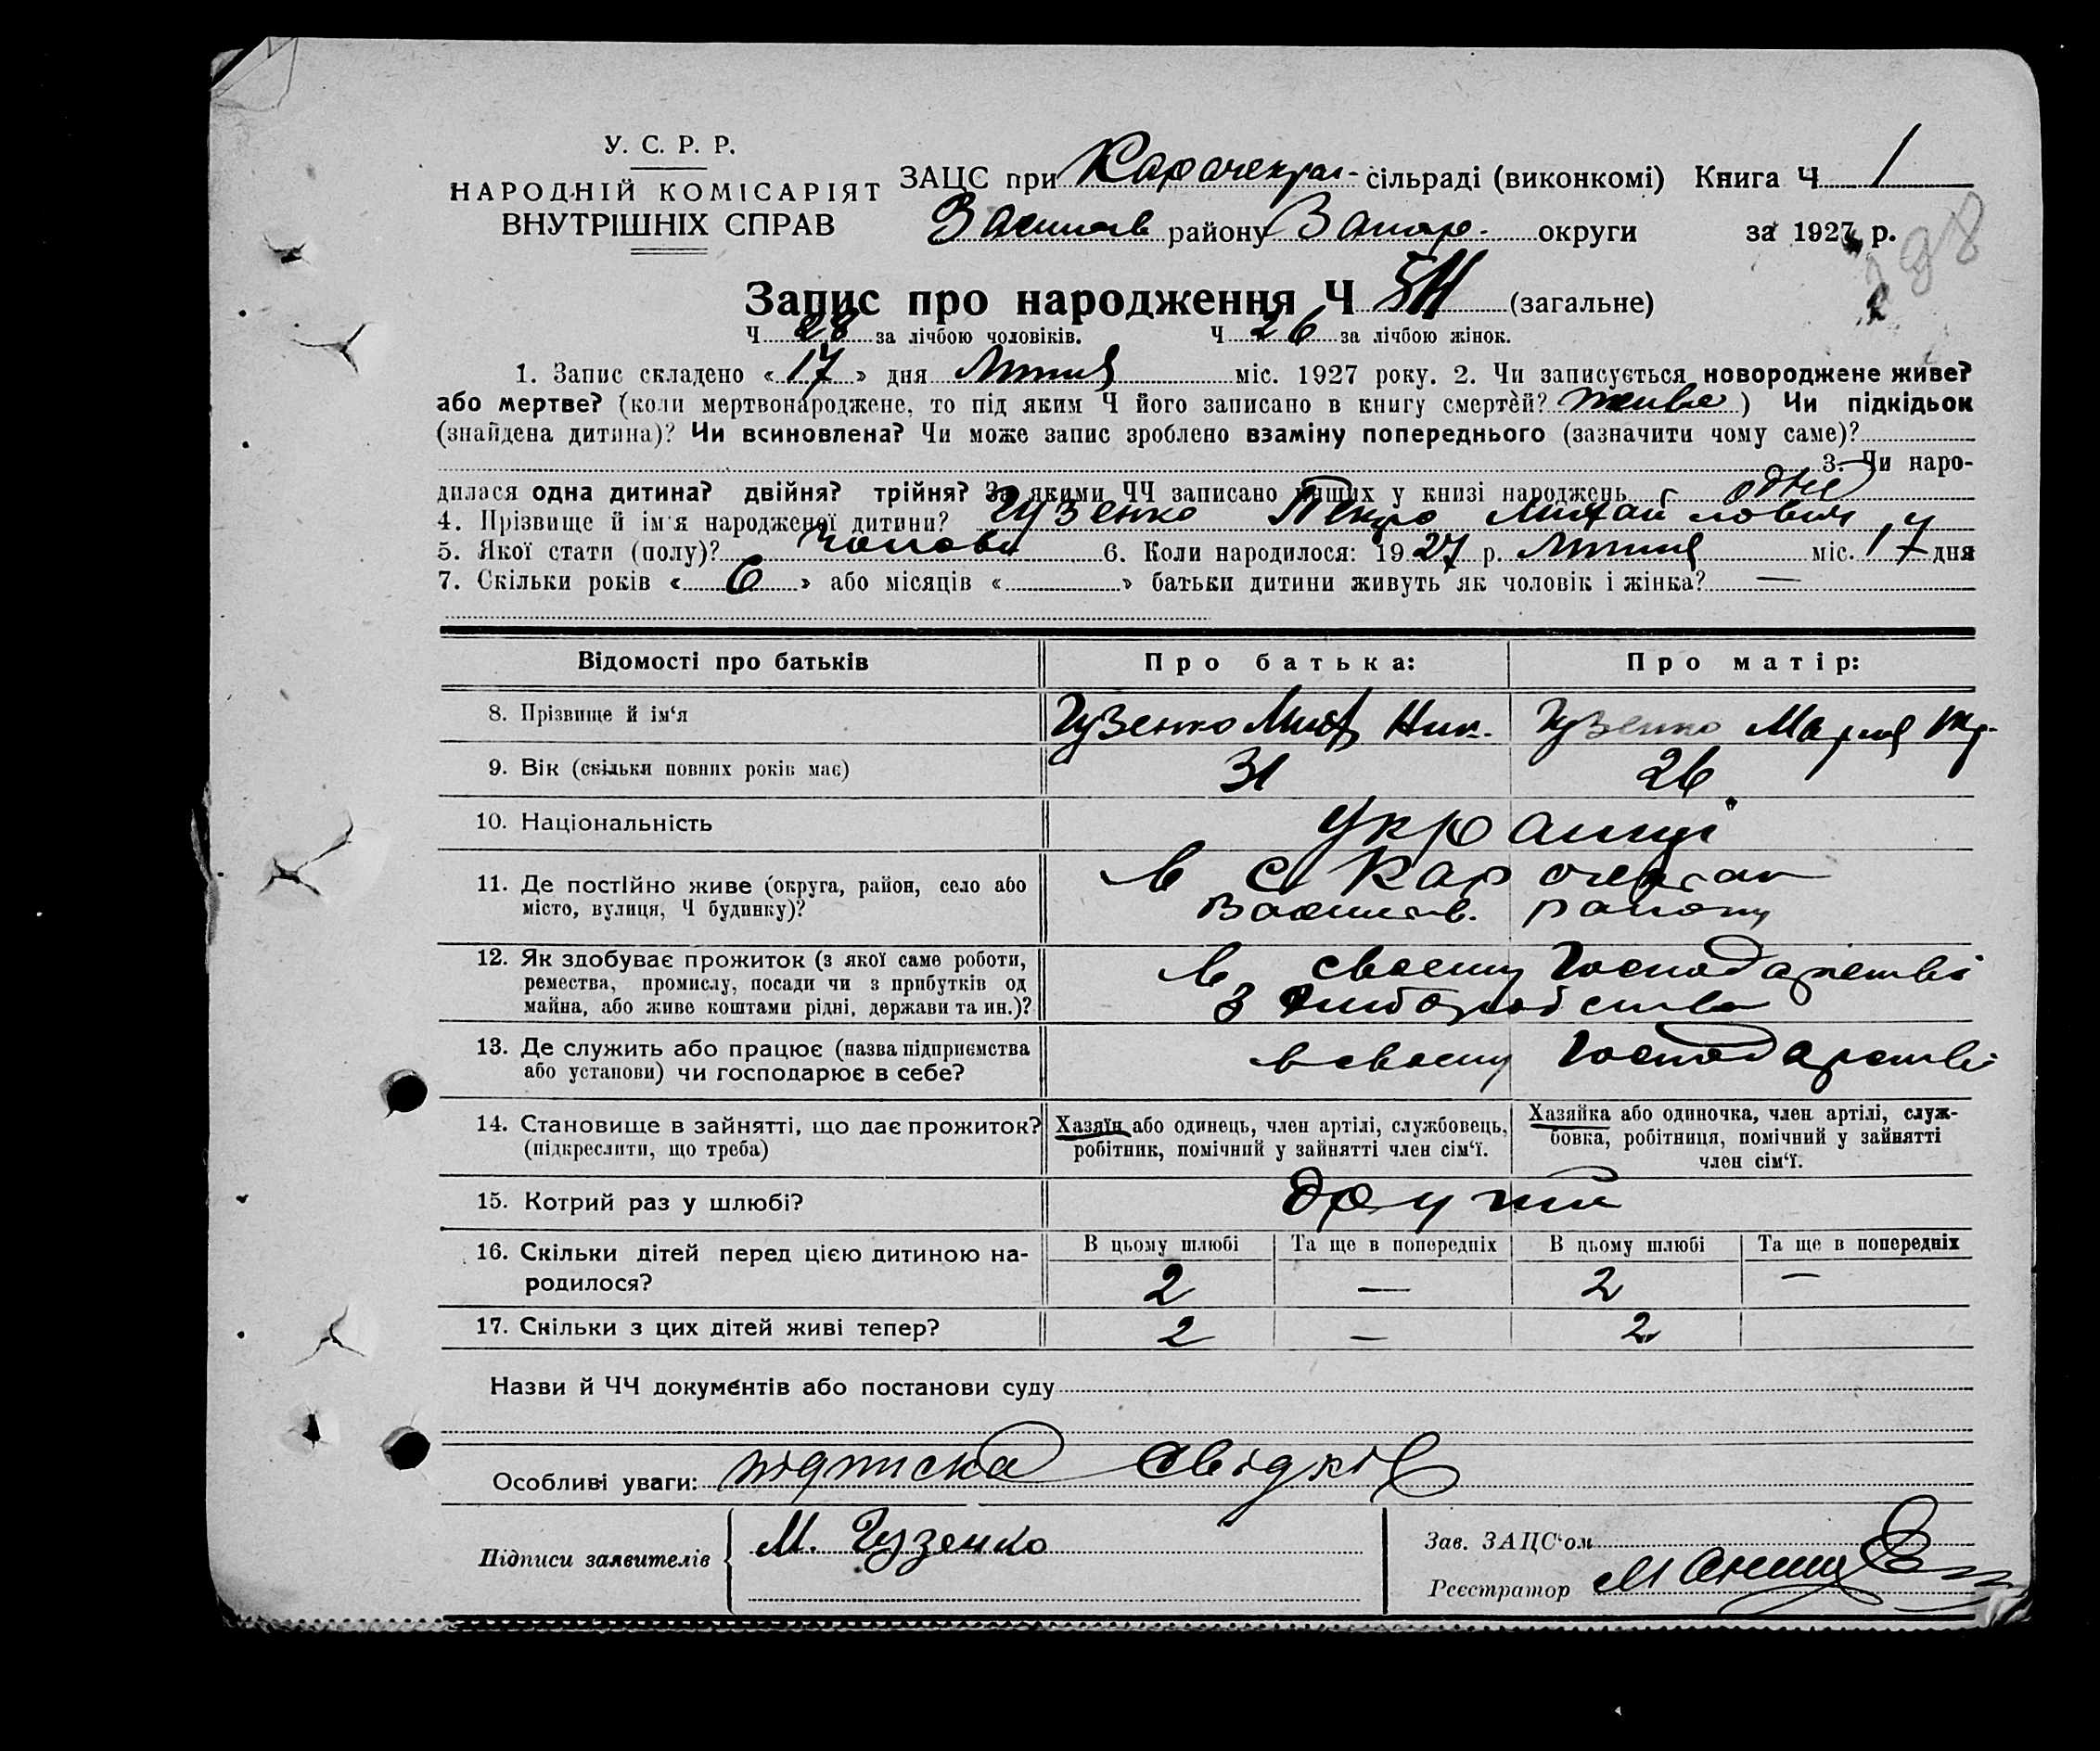 У. С. Р. Р.
НАРОДНІЙ КОМІСАРІЯТ
ВНУТРІШНІХ СПРАВ
ЗАЦС при Карачекрак- сільраді (виконкомі) Книга Ч 1
Василів району Запор. округи за 1927 р.
298
Запис про народження Ч 54 (загальне)
Ч 28 за лічбою чоловіків. Ч 26 за лічбою жінок.
1. Запис складено « 17 » дня Липня міс. 1927 року. 2. Чи записується новороджене живе?
або мертве? (коли мертвонароджене, то під яким Ч його записано в книгу смертей? живе ) Чи підкідьок
(знайдена дитина)? Чи всиновлена? Чи може запис зроблено взаміну попереднього (зазначити чому саме)?
3. Чи наро-
дилася одна дитина? двійня? трійня? За якими ЧЧ записано инших у книзі народжень одне
4. Прізвище й ім'я народженої дитини? Гузенко Петро Михайлович
5. Якої стати (полу)? чолові 6. Коли народилося: 1927 р. Липня міс. 17 дня
7. Скільки років « 6 » або місяців « » батьки дитини живуть як чоловік і жінка? —
Відомості про батьків Про батька: Про матір:
8. Прізвище й ім'я Гузенко Мих Ник. Гузенко Мария
9. Вік (скільки повних років має) 31 26
10. Національність Українці
11. Де постійно живе (округа, район, село або в с Карачекрак
місто, вулиця, Ч будинку)? Василів. району
12. Як здобуває прожиток (з якої саме роботи, в своему Господарстві
ремества, промислу, посади чи з прибутків од з хліборобства
майна, або живе коштами рідні, держави та ин.)?
13. Де служить або працює (назва підприємства в своему Господарстві
або установи) чи господарює в себе?
14. Становище в зайнятті, що дає прожиток? Хазяїн або одинець, член артілі, службовець, Хазяйка або одиночка, член артілі, служ-
(підкреслити, що треба) робітник, помічний у зайнятті член сім'ї. бовка, робітниця, помічний у зайнятті
член сім'ї.
15. Котрий раз у шлюбі? другий
16. Скільки дітей перед цією дитиною на- В цьому шлюбі Та ще в попередніх В цьому шлюбі Та ще в попередніх
родилося? 2 — 2 —
17. Скільки з цих дітей живі тепер? 2 — 2
Назви й ЧЧ документів або постанови суду
Особливі уваги: підписка свідків
Підписи заявителів М. Гузенко
Зав. ЗАЦС'ом
Реєстратор